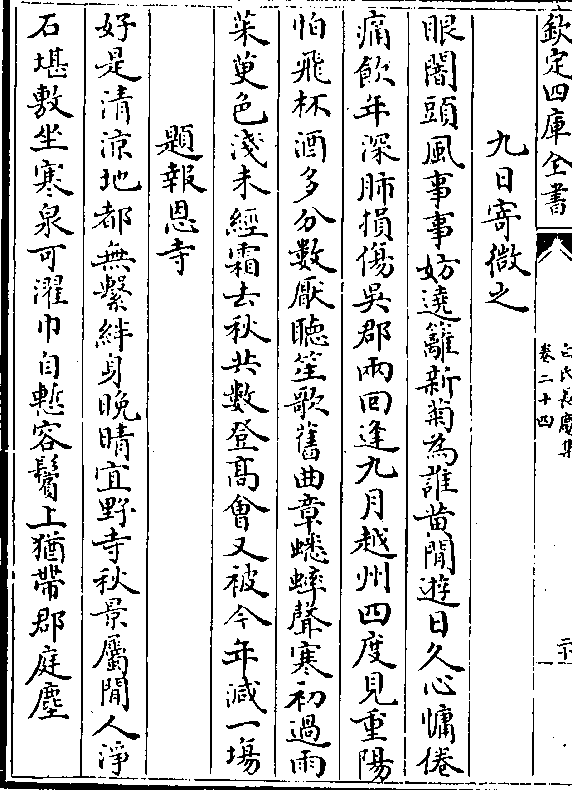 欽定四庫全書
白氏長慶集
卷二十四
九日寄微之
眼闇頭風事事妨遶籬新菊為誰黄閒遊日久心慵倦
痛飲年深肺損傷吳郡兩回逢九月越州四度見重陽
怕飛杯酒多分數厭聽笙歌舊曲章蟋蟀聲寒初過雨
茱萸色淺未經霜去秋共數登髙㑹又被今年減一塲
題報恩寺
好是清涼地都無繫絆身晚晴宜野寺秋景屬閒人淨
石堪敷坐寒泉可濯巾自慙容鬢上猶帶郡庭塵